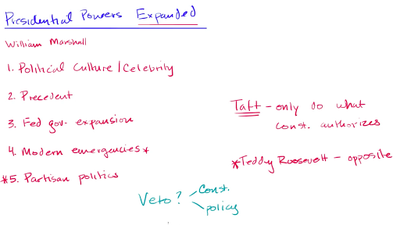 Presidential Powers Expanded
William Marshall
1. Political Culture/Celebrity
2. Precedent
3. Fed gov. expansion
4. Modern emergencies*
*5. Partisan politics
Taft - only do what
const. authorizes
*Teddy Roosevelt - opposite
Veto?
Const.
policy